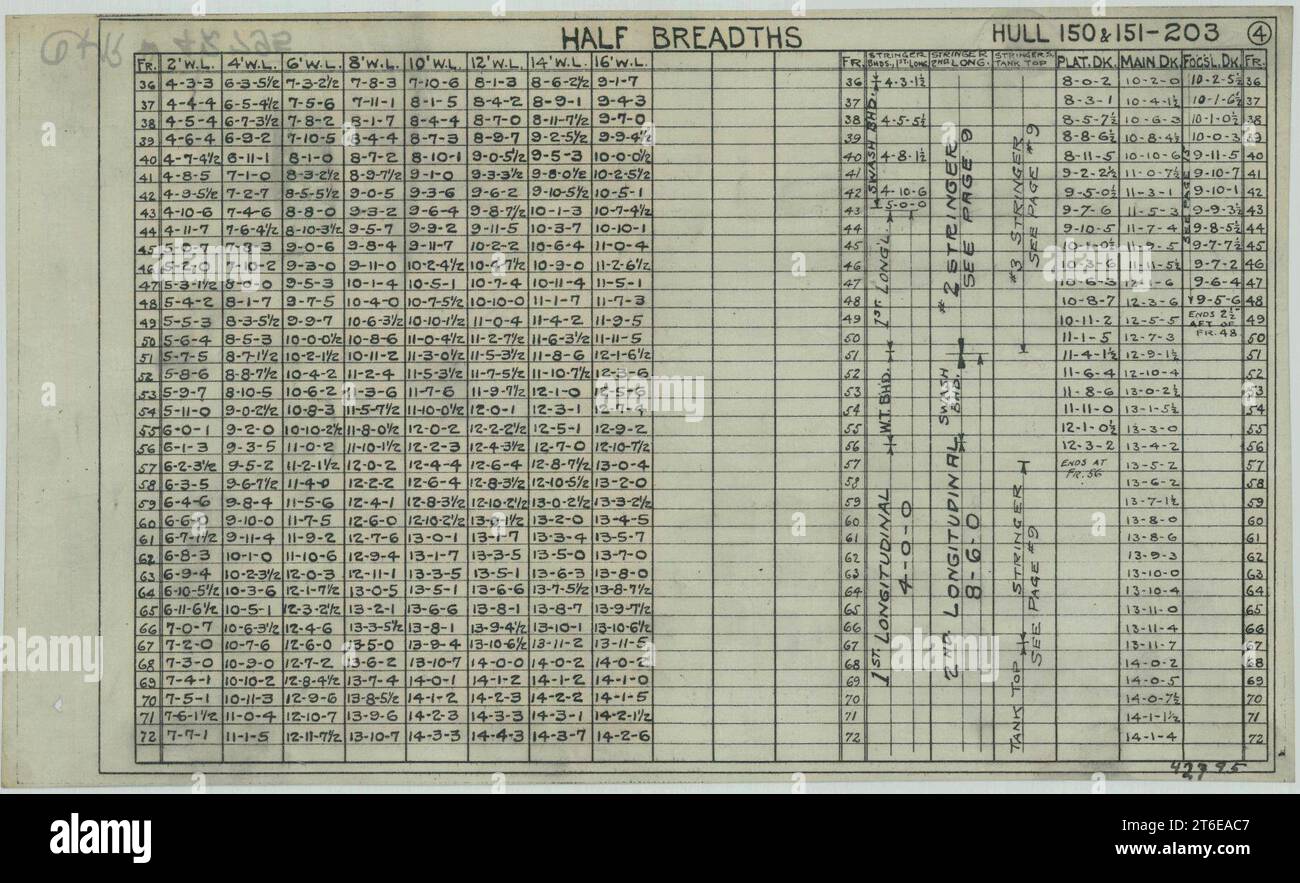 HALF BREADTHS
HULL 150 & 151-203 4
FR. 2' W.L. 4' W.L. 6' W.L. 8' W.L. 10' W.L. 12' W.L. 14' W.L. 16' W.L. FR. STRINGER BHDS, 1ST LONG STRINGER 2ND LONG. STRINGERS TANK TOP PLAT. DK. MAIN DK. FOC'S'L. DK. FR.
36 4-3-3 6-3-5½ 7-3-2½ 7-8-3 7-10-6 8-1-3 8-6-2½ 9-1-7 36 4-3-1½ 8-0-2 10-2-0 10-2-5½ 36
37 4-4-4 6-5-4½ 7-5-6 7-11-1 8-1-5 8-4-2 8-9-1 9-4-3 37 8-3-1 10-4-1½ 10-1-6½ 37
38 4-5-4 6-7-3½ 7-8-2 8-1-7 8-4-4 8-7-0 8-11-7½ 9-7-0 38 4-5-5½ 8-5-7½ 10-6-3 10-1-0½ 38
39 4-6-4 6-9-2 7-10-5 8-4-4 8-7-3 8-9-7 9-2-5½ 9-9-4½ 39 8-8-6½ 10-8-4½ 10-0-3 39
40 4-7-4½ 6-11-1 8-1-0 8-7-2 8-10-1 9-0-5½ 9-5-3 10-0-0½ 40 4-8-1½ 8-11-5 10-10-6 9-11-5 40
41 4-8-5 7-1-0 8-3-2½ 8-9-7½ 9-1-0 9-3-3½ 9-8-0½ 10-2-5½ 41 9-2-2½ 11-0-7½ 9-10-7 41
42 4-9-5½ 7-2-7 8-5-5½ 9-0-5 9-3-6 9-6-2 9-10-5½ 10-5-1 42 4-10-6 9-5-0½ 11-3-1 9-10-1 42
43 4-10-6 7-4-6 8-8-0 9-3-2 9-6-4 9-8-7½ 10-1-3 10-7-4½ 43 5-0-0 9-7-6 11-5-3 9-9-3½ 43
44 4-11-7 7-6-4½ 8-10-3½ 9-5-7 9-9-2 9-11-5 10-3-7 10-10-1 44 9-10-5 11-7-4 9-8-5½ 44
45 5-0-7 7-8-3 9-0-6 9-8-4 9-11-7 10-2-2 10-6-4 11-0-4 45 10-1-0½ 11-9-5 9-7-7½ 45
46 5-2-0 7-10-2 9-3-0 9-11-0 10-2-4½ 10-4-7½ 10-9-0 11-2-6½ 46 10-3-6 11-11-5½ 9-7-2 46
47 5-3-1½ 8-0-0 9-5-3 10-1-4 10-5-1 10-7-4 10-11-4 11-5-1 47 10-6-3 12-1-6 9-6-4 47
48 5-4-2 8-1-7 9-7-5 10-4-0 10-7-5½ 10-10-0 11-1-7 11-7-3 48 10-8-7 12-3-6 9-5-6 48
49 5-5-3 8-3-5½ 9-9-7 10-6-3½ 10-10-1½ 11-0-4 11-4-2 11-9-5 49 10-11-2 12-5-5 ENDS 2½ AFT OF FR. 48 49
50 5-6-4 8-5-3 10-0-0½ 10-8-6 11-0-4½ 11-2-7½ 11-6-3½ 11-11-5 50 11-1-5 12-7-3 50
51 5-7-5 8-7-1½ 10-2-1½ 10-11-2 11-3-0½ 11-5-3½ 11-8-6 12-1-6½ 51 11-4-1½ 12-9-1½ 51
52 5-8-6 8-8-7½ 10-4-2 11-2-4 11-5-3½ 11-7-5½ 11-10-7½ 12-3-6 52 11-6-4 12-10-4 52
53 5-9-7 8-10-5 10-6-2 11-3-6 11-7-6 11-9-7½ 12-1-0 12-5-6 53 11-8-6 13-0-2½ 53
54 5-11-0 9-0-2½ 10-8-3 11-5-7½ 11-10-0½ 12-0-1 12-3-1 12-7-4 54 11-11-0 13-1-5½ 54
55 6-0-1 9-2-0 10-10-2½ 11-8-0½ 12-0-2 12-2-2½ 12-5-1 12-9-2 55 12-1-0½ 13-3-0 55
56 6-1-3 9-3-5 11-0-2 11-10-1½ 12-2-3 12-4-3½ 12-7-0 12-10-7½ 56 12-3-2 13-4-2 56
57 6-2-3½ 9-5-2 11-2-1½ 12-0-2 12-4-4 12-6-4 12-8-7½ 13-0-4 57 ENDS AT FR. 56 13-5-2 57
58 6-3-5 9-6-7½ 11-4-0 12-2-2 12-6-4 12-8-3½ 12-10-5½ 13-2-0 58 13-6-2 58
59 6-4-6 9-8-4 11-5-6 12-4-1 12-8-3½ 12-10-2½ 13-0-2½ 13-3-2½ 59 13-7-1½ 59
60 6-6-0 9-10-0 11-7-5 12-6-0 12-10-2½ 13-0-1½ 13-2-0 13-4-5 60 13-8-0 60
61 6-7-1½ 9-11-4 11-9-2 12-7-6 13-0-1 13-1-7 13-3-4 13-5-7 61 13-8-6 61
62 6-8-3 10-1-0 11-10-6 12-9-4 13-1-7 13-3-5 13-5-0 13-7-0 62 13-9-3 62
63 6-9-4 10-2-3½ 12-0-3 12-11-1 13-3-5 13-5-1 13-6-3 13-8-0 63 13-10-0 63
64 6-10-5½ 10-3-6 12-1-7½ 13-0-5 13-5-1 13-6-6 13-7-5½ 13-8-7½ 64 13-10-4 64
65 6-11-6½ 10-5-1 12-3-2½ 13-2-1 13-6-6 13-8-1 13-8-7 13-9-7½ 65 13-11-0 65
66 7-0-7 10-6-3½ 12-4-6 13-3-5½ 13-8-1 13-9-4½ 13-10-1 13-10-6½ 66 13-11-4 66
67 7-2-0 10-7-6 12-6-0 13-5-0 13-9-4 13-10-6½ 13-11-2 13-11-5 67 13-11-7 67
68 7-3-0 10-9-0 12-7-2 13-6-2 13-10-7 14-0-0 14-0-2 14-0-2 68 14-0-2 68
69 7-4-1 10-10-2 12-8-4½ 13-7-4 14-0-1 14-1-2 14-1-2 14-1-0 69 14-0-5 69
70 7-5-1 10-11-3 12-9-6 13-8-5½ 14-1-2 14-2-3 14-2-2 14-1-5 70 14-0-7½ 70
71 7-6-1½ 11-0-4 12-10-7 13-9-6 14-2-3 14-3-3 14-3-1 14-2-1½ 71 14-1-1½ 71
72 7-7-1 11-1-5 12-11-7½ 13-10-7 14-3-3 14-4-3 14-3-7 14-2-6 72 14-1-4 72
SWASH BHD.
1ST LONG'L
W.T. BHD.
1ST. LONGITUDINAL
4-0-0
#2 STRINGER
SEE PAGE 9
SWASH BHD.
2ND. LONGITUDINAL
8-6-0
#3 STRINGER
SEE PAGE #9
STRINGER
TANK TOP
SEE PAGE #9
42795
alamy
Image ID: 2T6EAC7
www.alamy.com